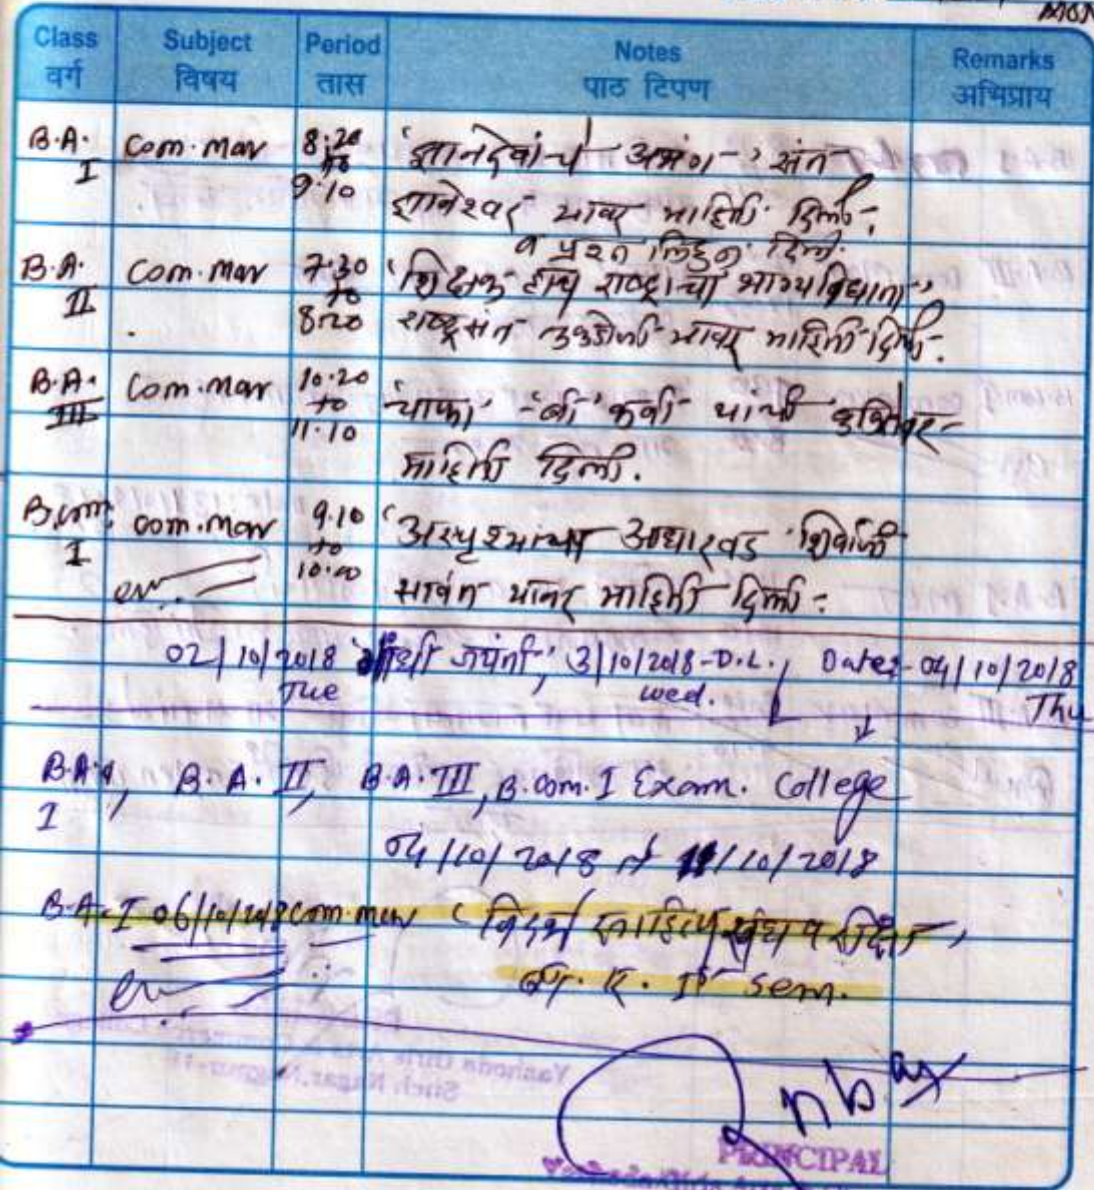 MON
Class Subject Period Notes Remarks
वर्ग विषय तास पाठ टिपण अभिप्राय
B.A. I Com. mar 8:20 to 9:10 'ज्ञानदेवांचे अभंग' संत
ज्ञानेश्वर यावर माहिती दिली.
व प्रश्न लिहून दिले.
B.A. II Com. mar 7:30 to 8:20 'शिक्षक हाच राष्ट्राचा भाग्यविधाता'
राष्ट्रसंत तुकडोजी यावर माहिती दिली.
B.A. III Com. mar 10.20 to 11.10 'चाफा' 'बी' कवी यांची
माहिती दिली.
B.com. I Com. mar 9.10 to 10.00 'अस्पृश्यांचा आधारवड' शिवाजी
सावंत यावर माहिती दिली.
02/10/2018 गांधी जयंती, 3/10/2018 - D.L., Date:- 04/10/2018
Tue wed. Thu
B.A. I, B.A. II, B.A. III, B.com. I Exam. College
04/10/2018 11/10/2018
B.A. I 06/10/2018 com. mar 'विदर्भ साहित्य
Ist Sem.
PRINCIPAL